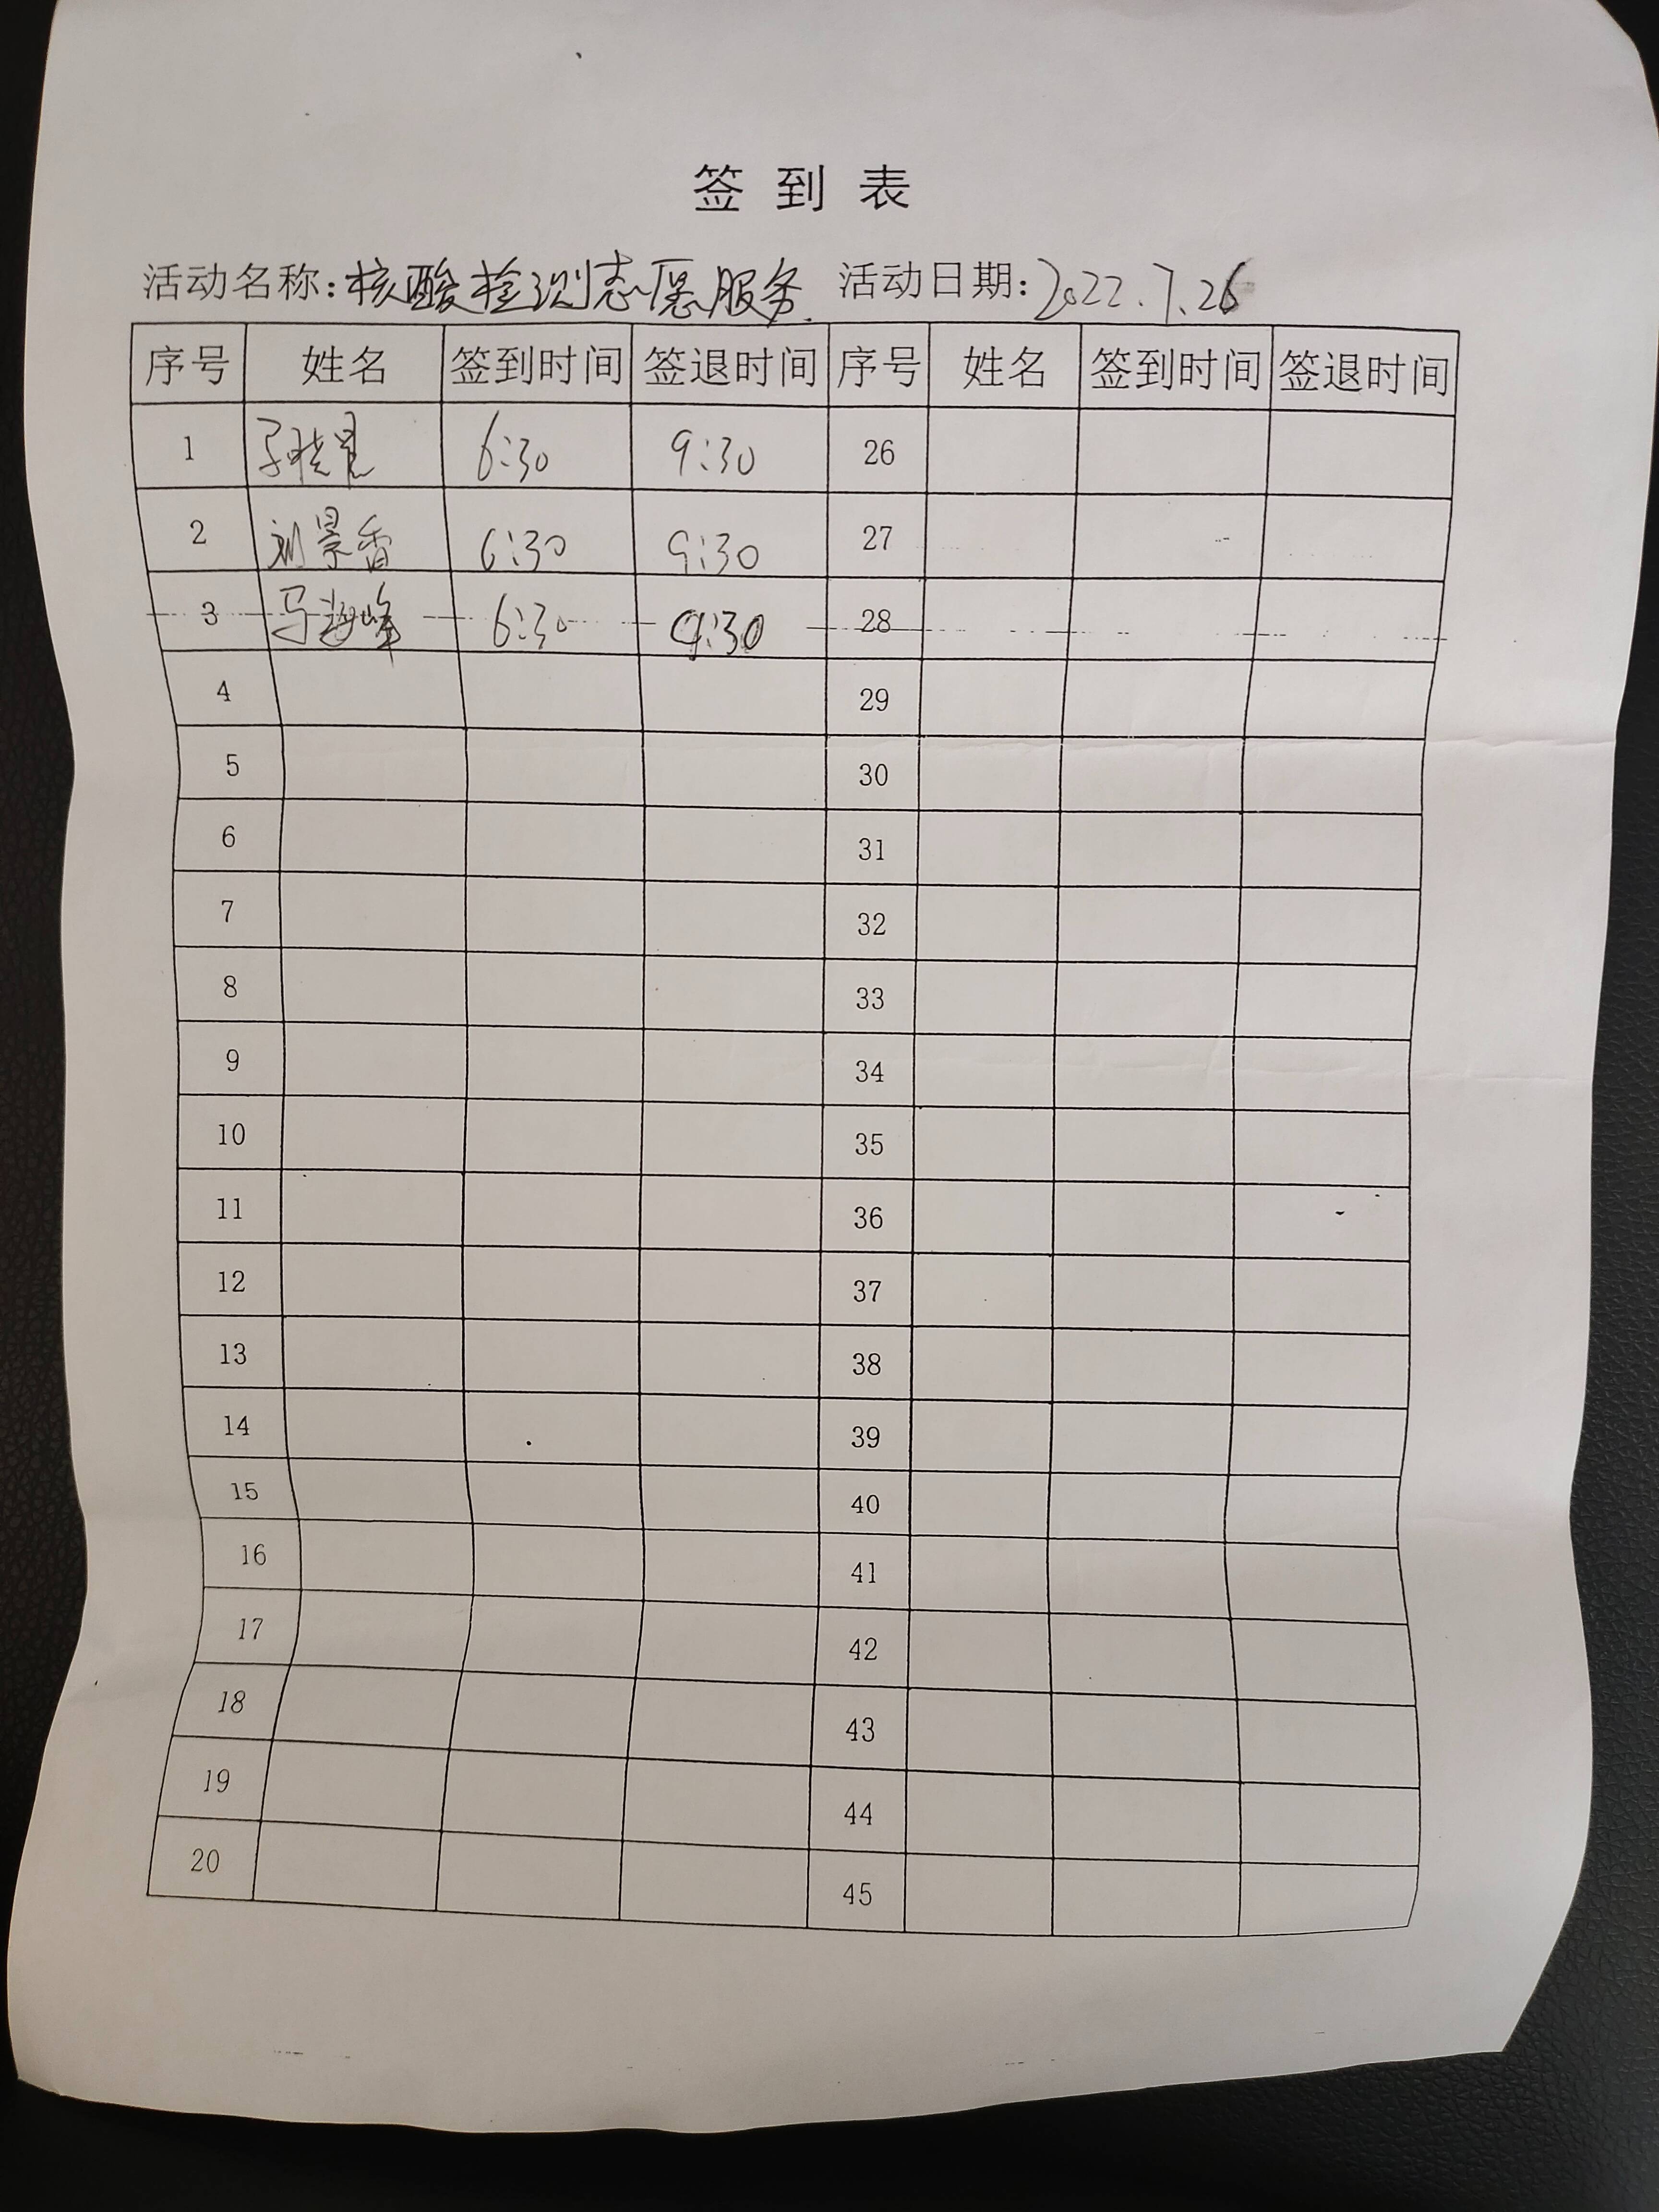 签到表
活动名称:核酸检测志愿服务 活动日期:2022.7.26
序号 姓名 签到时间 签退时间 序号 姓名 签到时间 签退时间
1 6:30 9:30 26
2 刘景香 6:30 9:30 27
3 马海峰 6:30 9:30 28
4 29
5 30
6 31
7 32
8 33
9 34
10 35
11 36
12 37
13 38
14 39
15 40
16 41
17 42
18 43
19 44
20 45